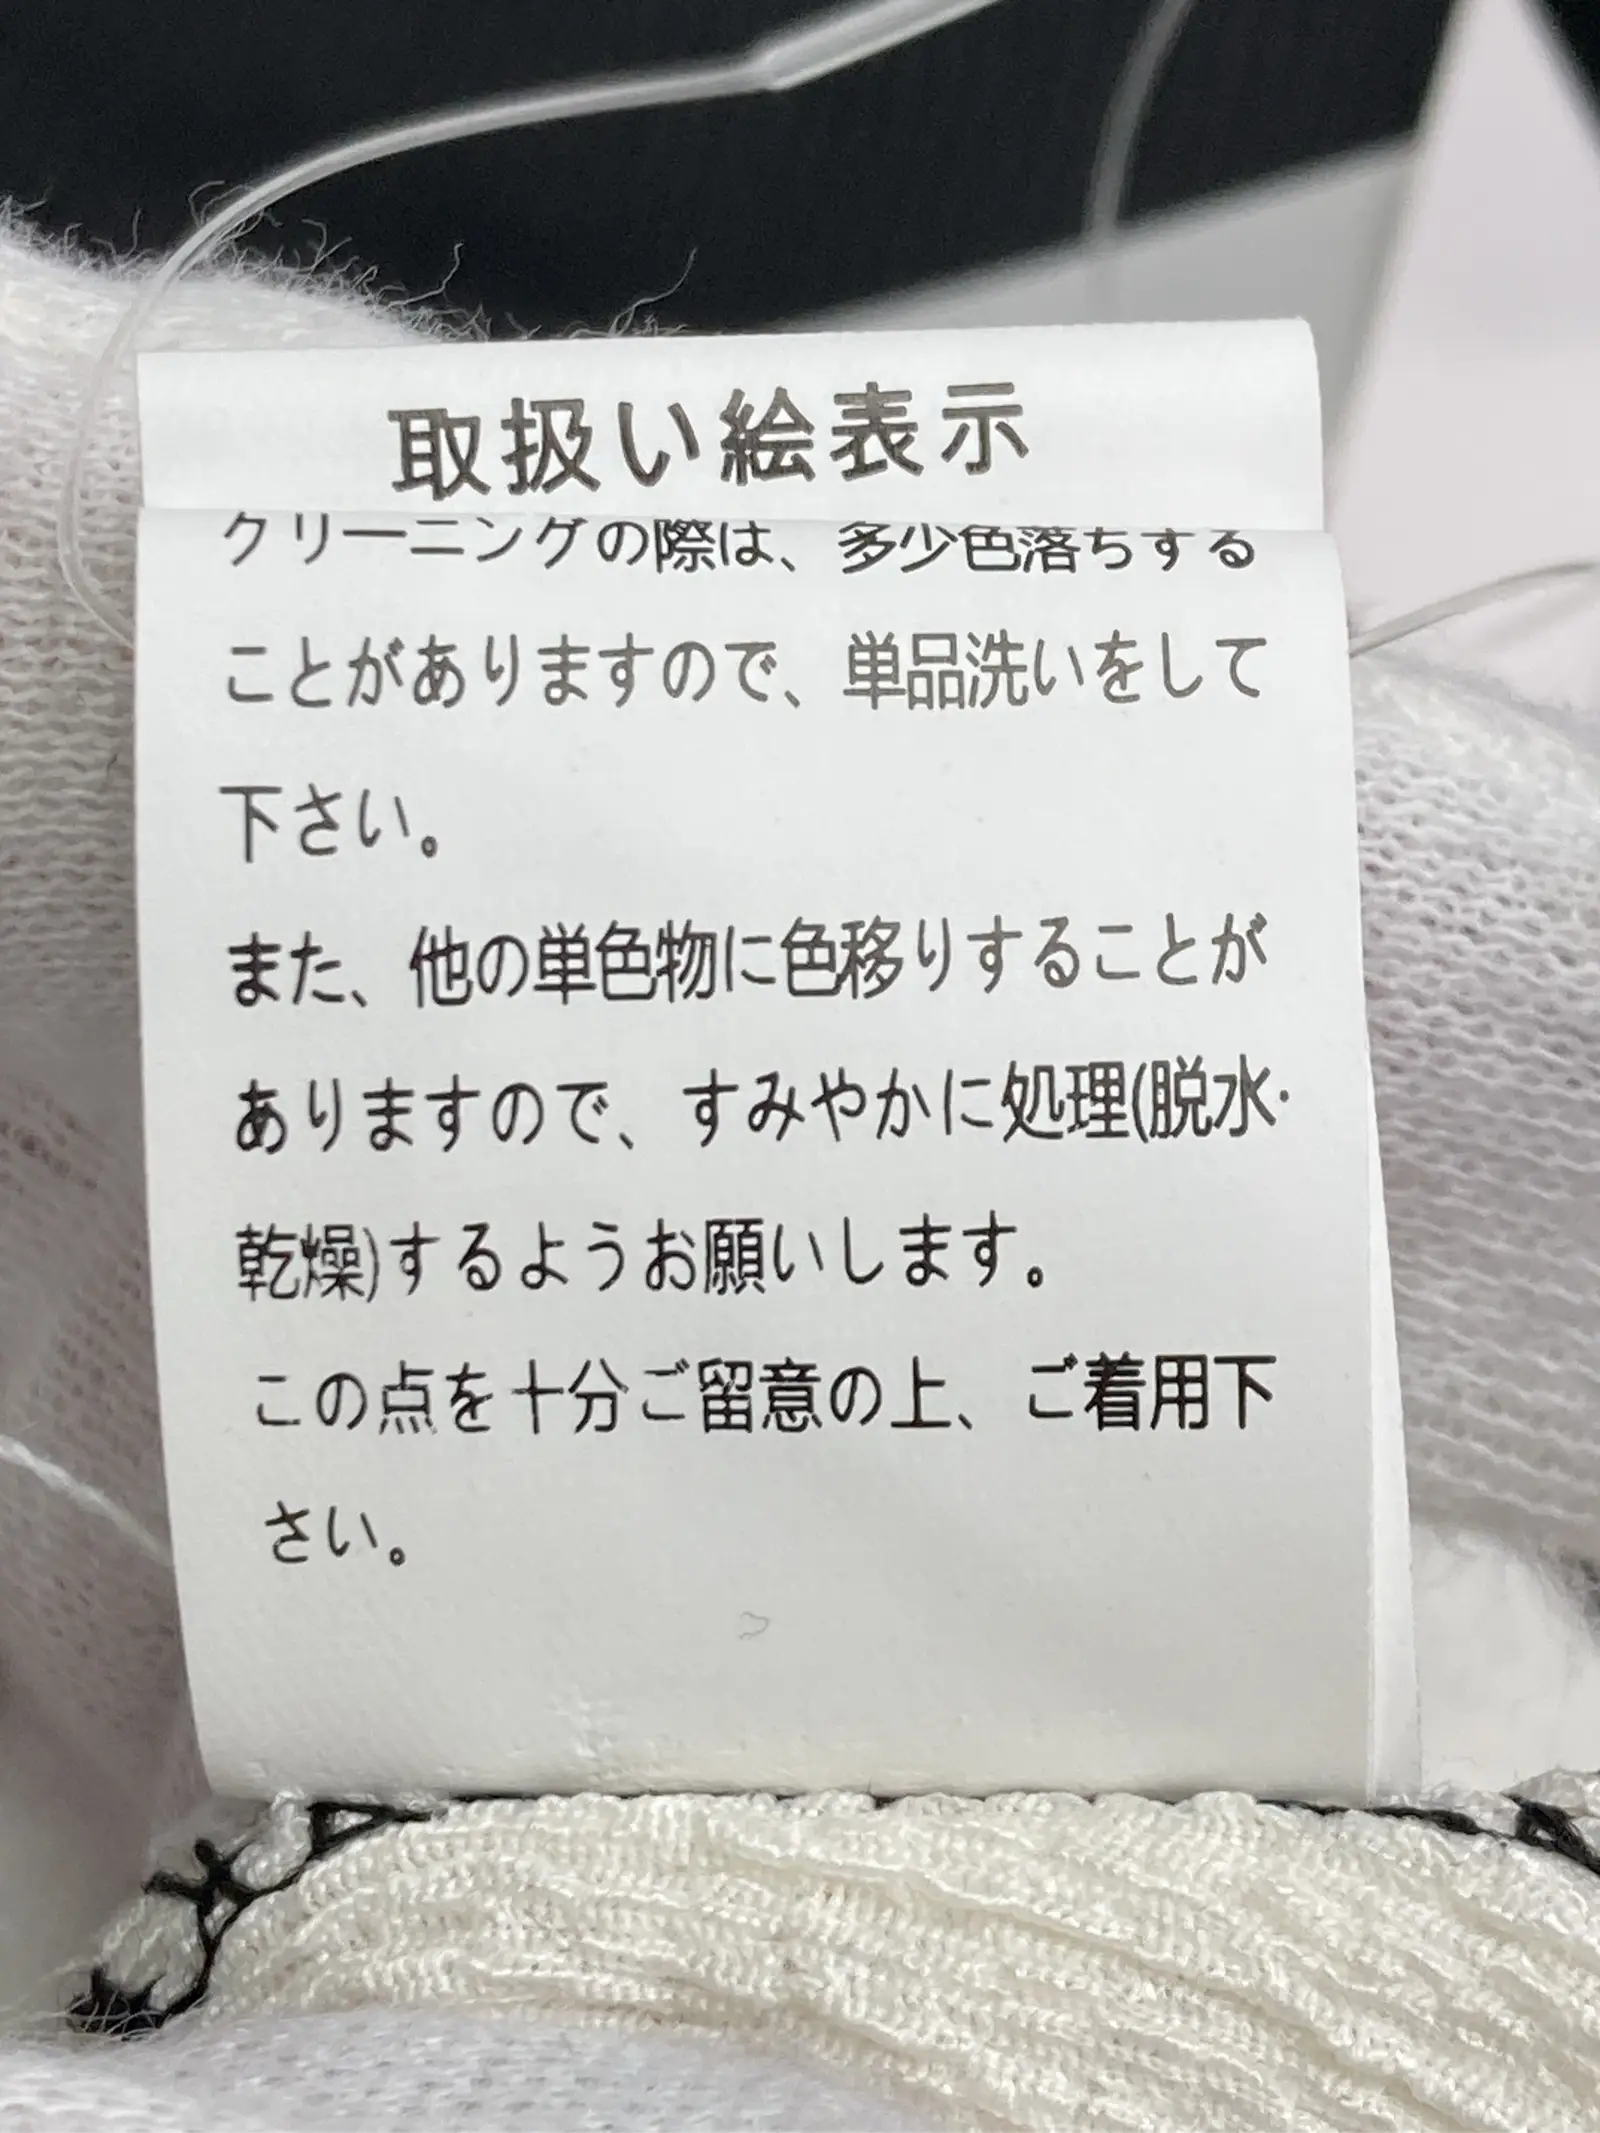 取扱い絵表示
クリーニングの際は、多少色落ちする
ことがありますので、単品洗いをして
下さい。
また、他の単色物に色移りすることが
ありますので、すみやかに処理(脱水・
乾燥)するようお願いします。
この点を十分ご留意の上、ご着用下
さい。